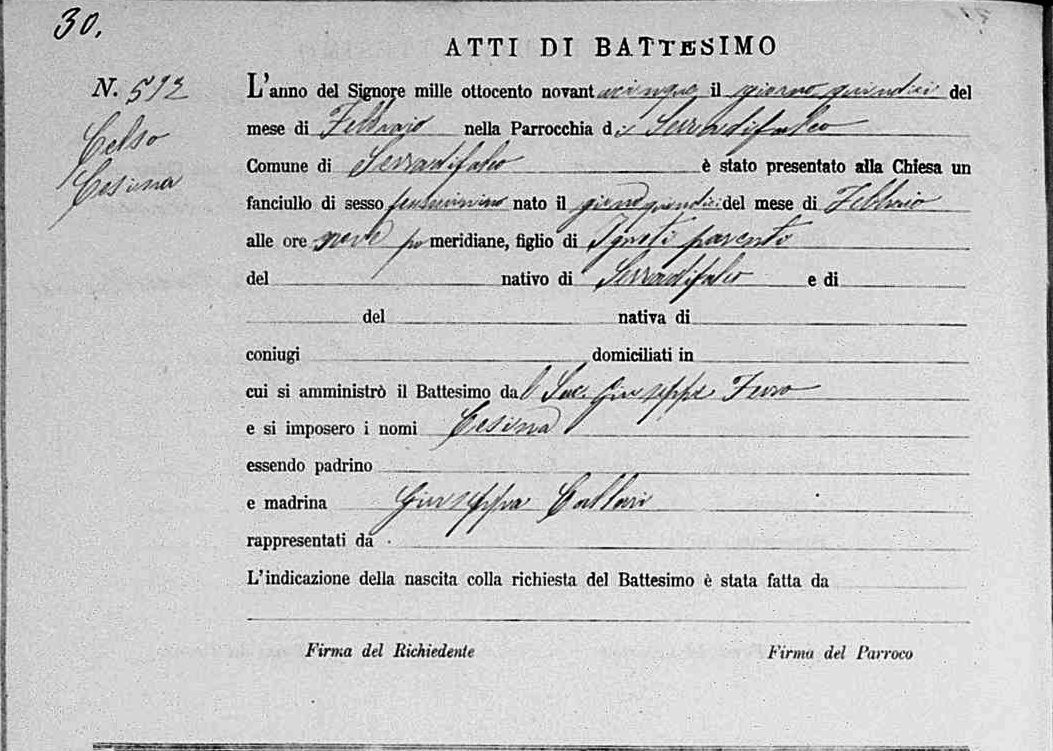 30.
ATTI DI BATTESIMO
N. 512
Celso
Cesina
L'anno del Signore mille ottocento novantacinque il giorno quindici del
mese di Febbraio nella Parrocchia di Serradifalco
Comune di Serradifalco è stato presentato alla Chiesa un
fanciullo di sesso femminino nato il giorno quindici del mese di Febbraio
alle ore nove pomeridiane, figlio di Ignoti parenti
del nativo di Serradifalco e di
del nativa di
coniugi domiciliati in
cui si amministrò il Battesimo dal Sac. Giuseppe Ferro
e si imposero i nomi Cesina
essendo padrino
e madrina Giuseppa Callari
rappresentati da
L'indicazione della nascita colla richiesta del Battesimo è stata fatta da
Firma del Richiedente Firma del Parroco